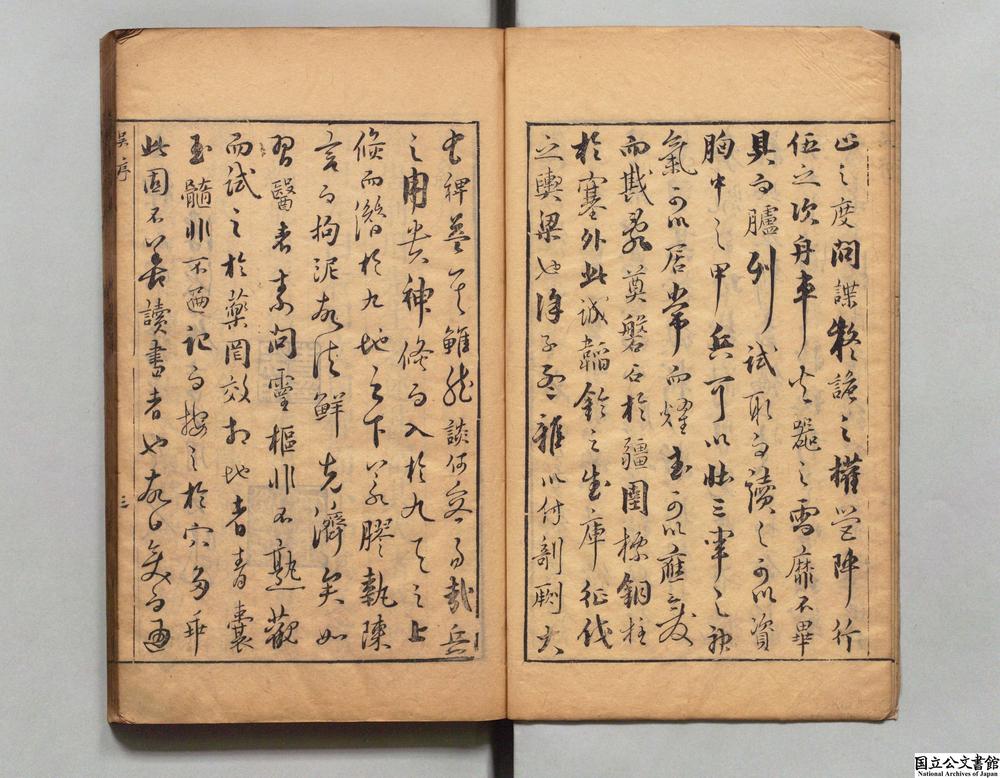 止之度間諜之權營陣行
伍之次舟車火器之需靡不畢
具而臚列試取而讀之可以資
胸中之甲兵可以壯三軍之神
氣可以居常而燿武可以應變
而戡亂奠磐石於疆圉標銅柱
於塞外此誠韜鈐之武庫征伐
之輿梁也徐子雅以付剞劂大
有裨益矣雖然談何容易哉兵
之用神倏而入於九天之上
倏而潛於九地之下若膠執陳
言而拘泥故法鮮克濟矣如
習醫者素問靈樞非不熟觀
而試之於藥罔效相地者青囊
玉髓非不遍記而按之於穴多乖
此固不善讀書者也故曰變而通
吳序
三
国立公文書館
National Archives of Japan